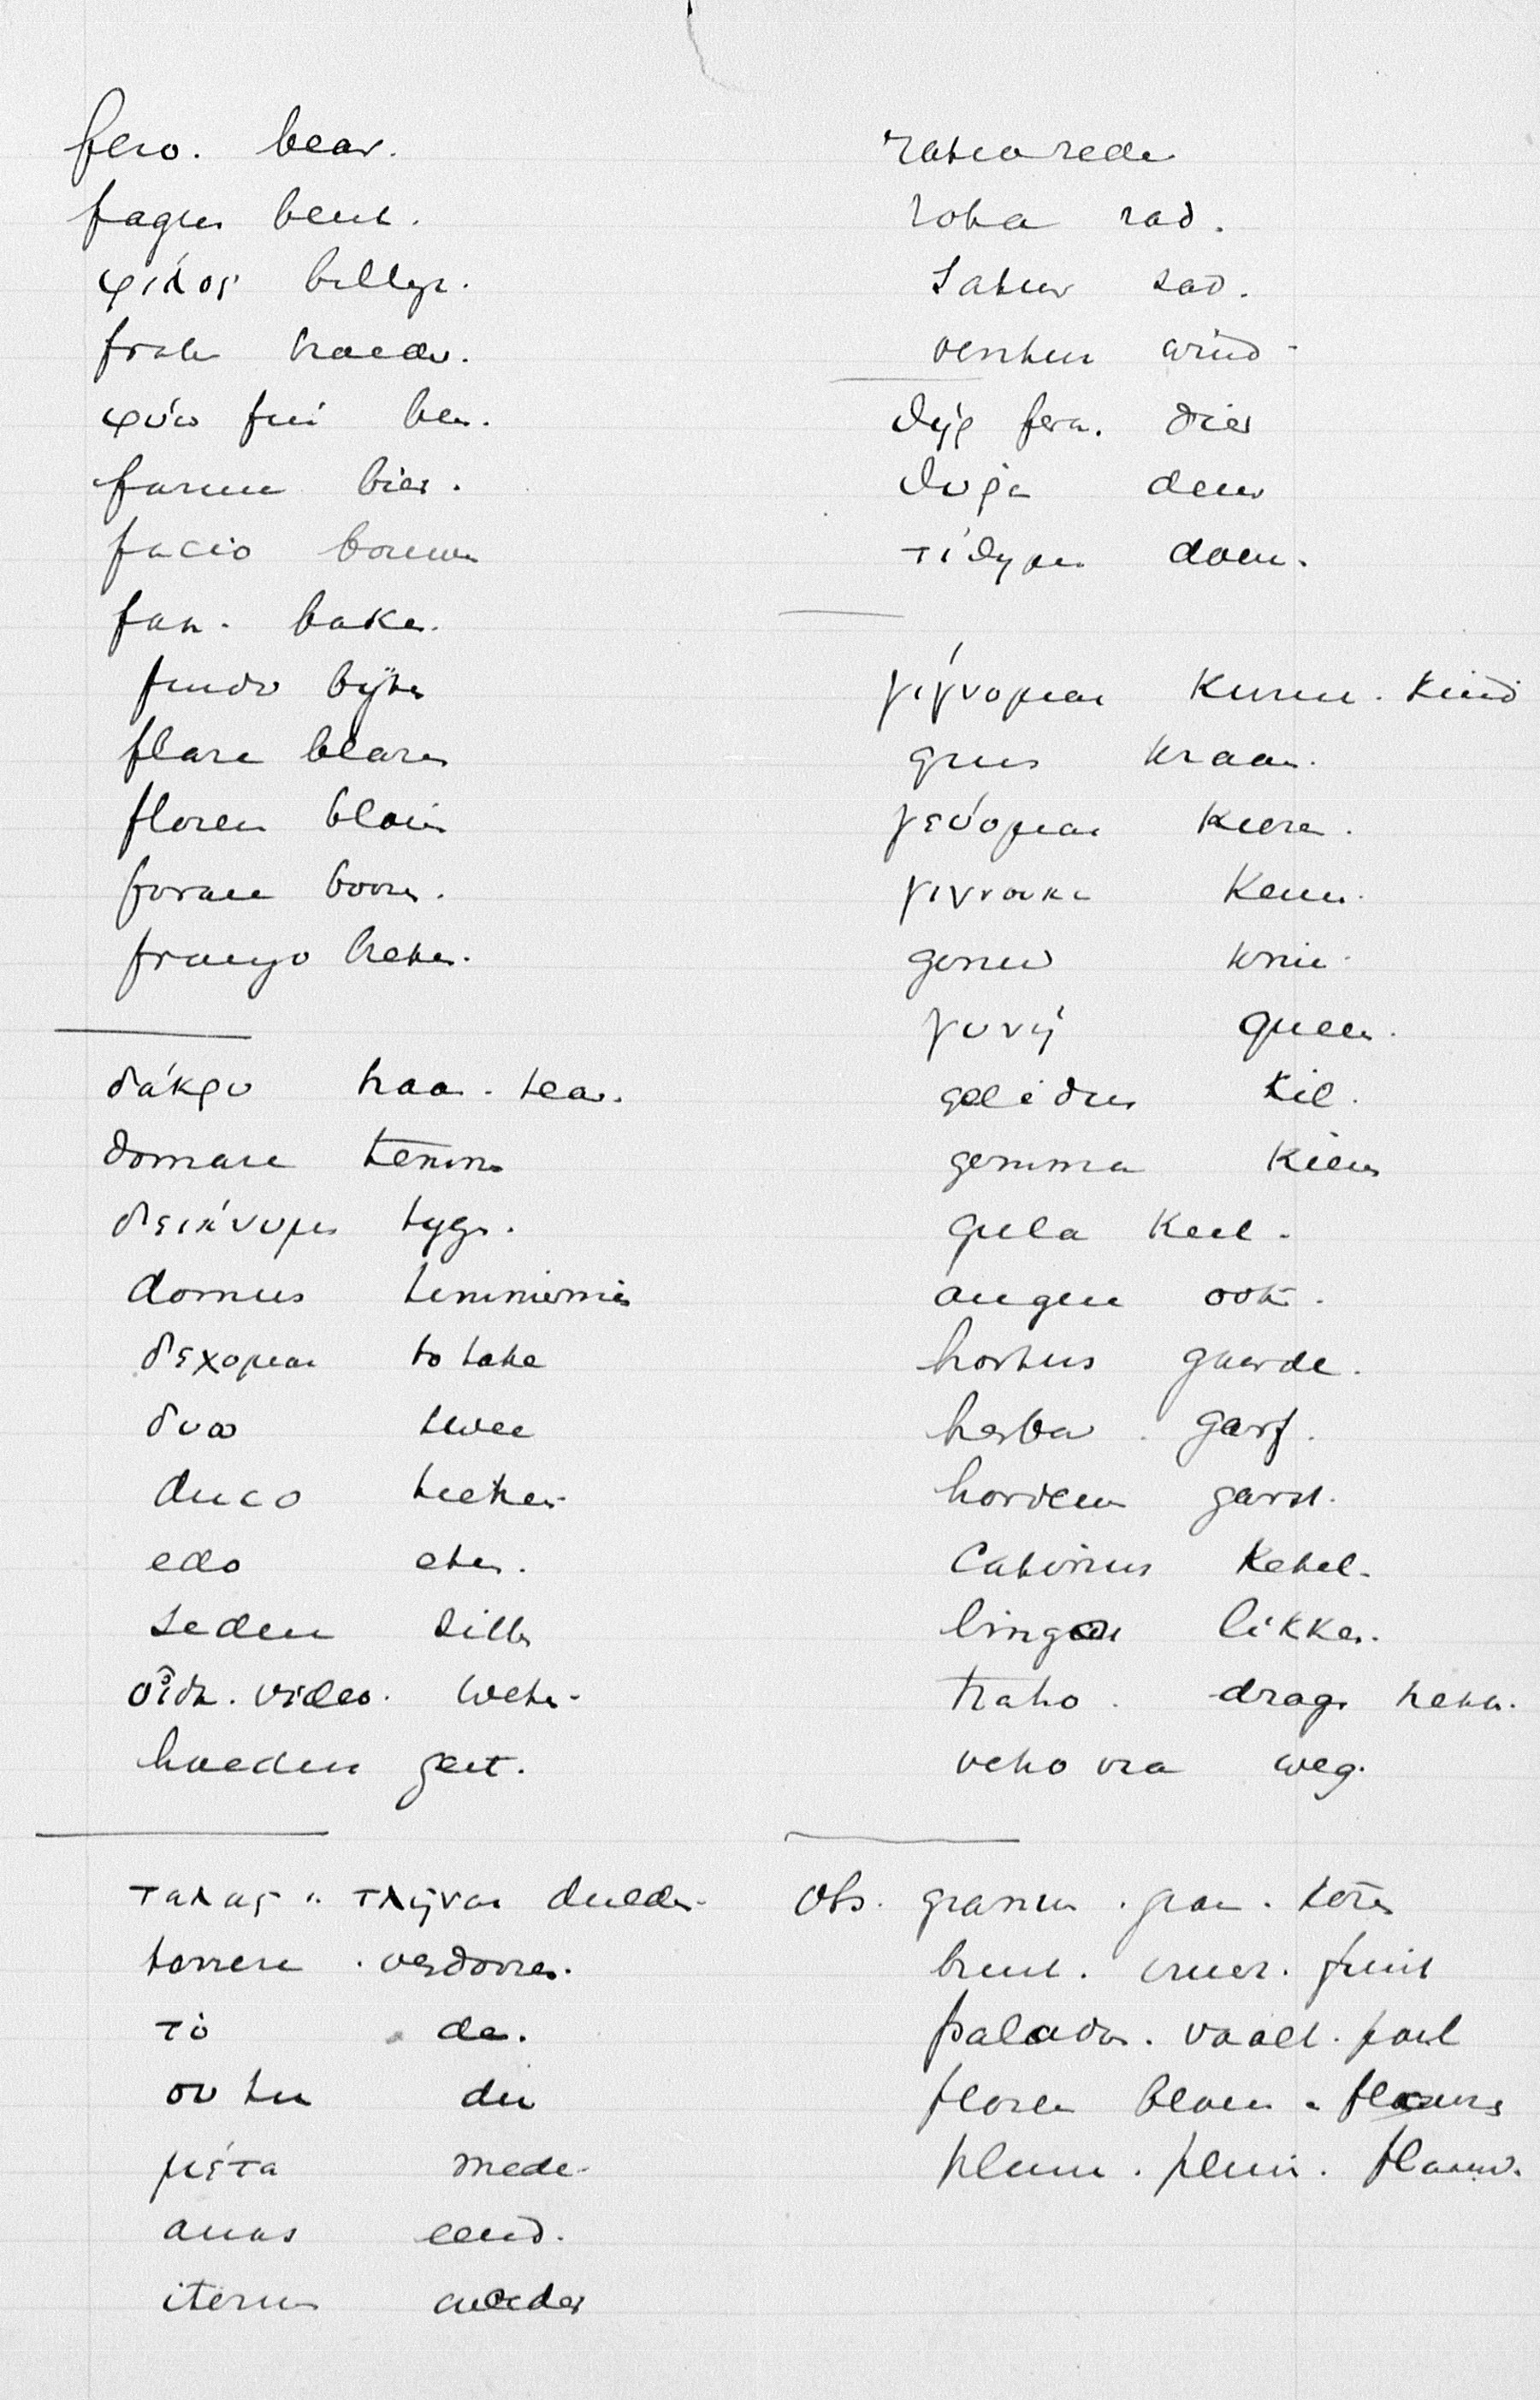 fero. bear.
fagus beuk.
φίλος billyk.
frater broeder.
φύω fui ben.
farina bier.
facio bouwen
fan. baken.
findo byten
flare blazen
floreo bloeien
forare boren.
frango breken.
δάκρυ traan. tear.
domare temmen
δείκνυμι tygen.
domus timmeren
δεχομαι to take
δυο twee
duco
edo eten.
sedeo zitten
οἶδα. video. weten.
haedus geit.
ταλας. τλῆναι dulden.
torrere. verdorren.
τὸ de.
συ tu du
μέτα mede.
anas eend.
iterum weder
ratio rede
rota rad.
satur zad.
ventus wind.
θήρ fera. dier
θυρα deur
τίθημι doen.
γίγνομαι kunne. kind
grus kraan.
γεύομαι kiezen.
γιγνωσκω kennen.
genu knie.
γυνή queen.
gelidus kil.
gemma kiem
gula keel.
augeo ook.
hortus gaarde.
herba garf.
hordeum garst.
Catinus Ketel.
lingere likken.
traho. dragen trekken.
veho via weg.
Obs. granum. graan. koren
bruut. fruit
palador. paal
floreo bloem. flauw
pluim. flauw.